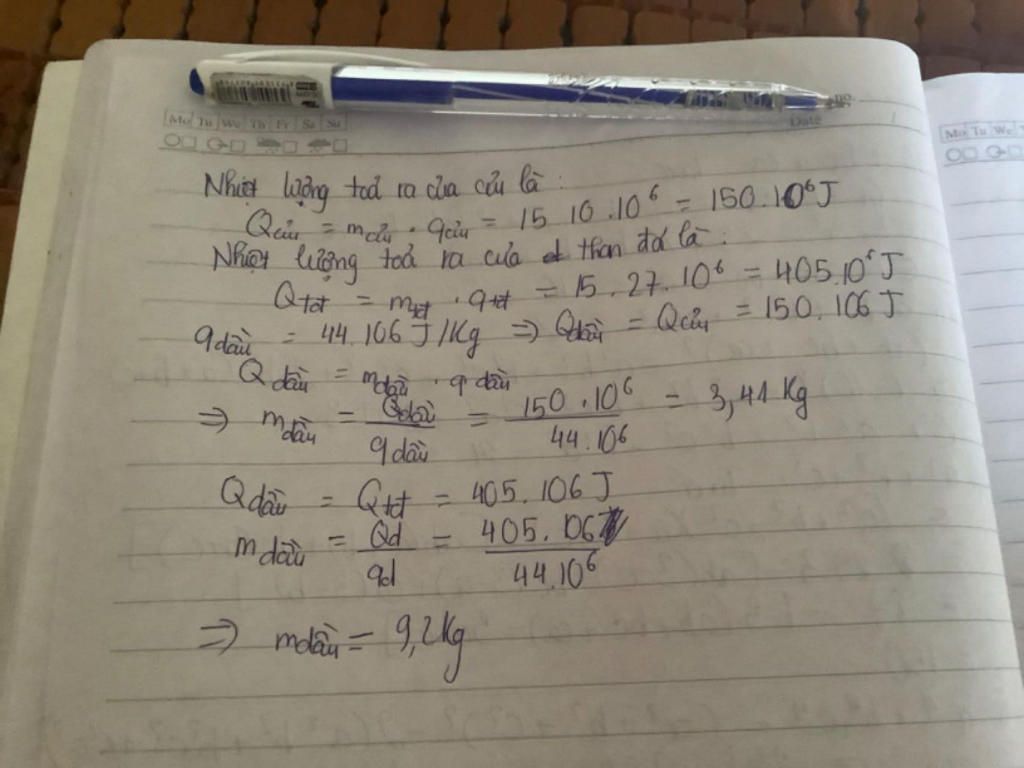 Mo Tu We Th Fr Sa Su
Date
Mo Tu We
Nhiệt lượng toả ra của củi là :
Qcủi = mcủi . qcủi = 15 10 .10⁶ = 150.10⁶ J
Nhiệt lượng toả ra của than đá là :
Qtđt = mtđt . qtđt = 15 . 27. 10⁶ = 405.10⁶ J
qdầu = 44.106 J/Kg ⇒ Qdầu = Qcủi = 150. 106 J
Qdầu = mdầu . qdầu
⇒ mdầu = Qdầu / qdầu = 150 .10⁶ / 44.10⁶ = 3,41 Kg
Qdầu = Qtđt = 405.106 J
mdầu = Qd / qd = 405. 106 / 44.10⁶
⇒ mdầu = 9,2 Kg